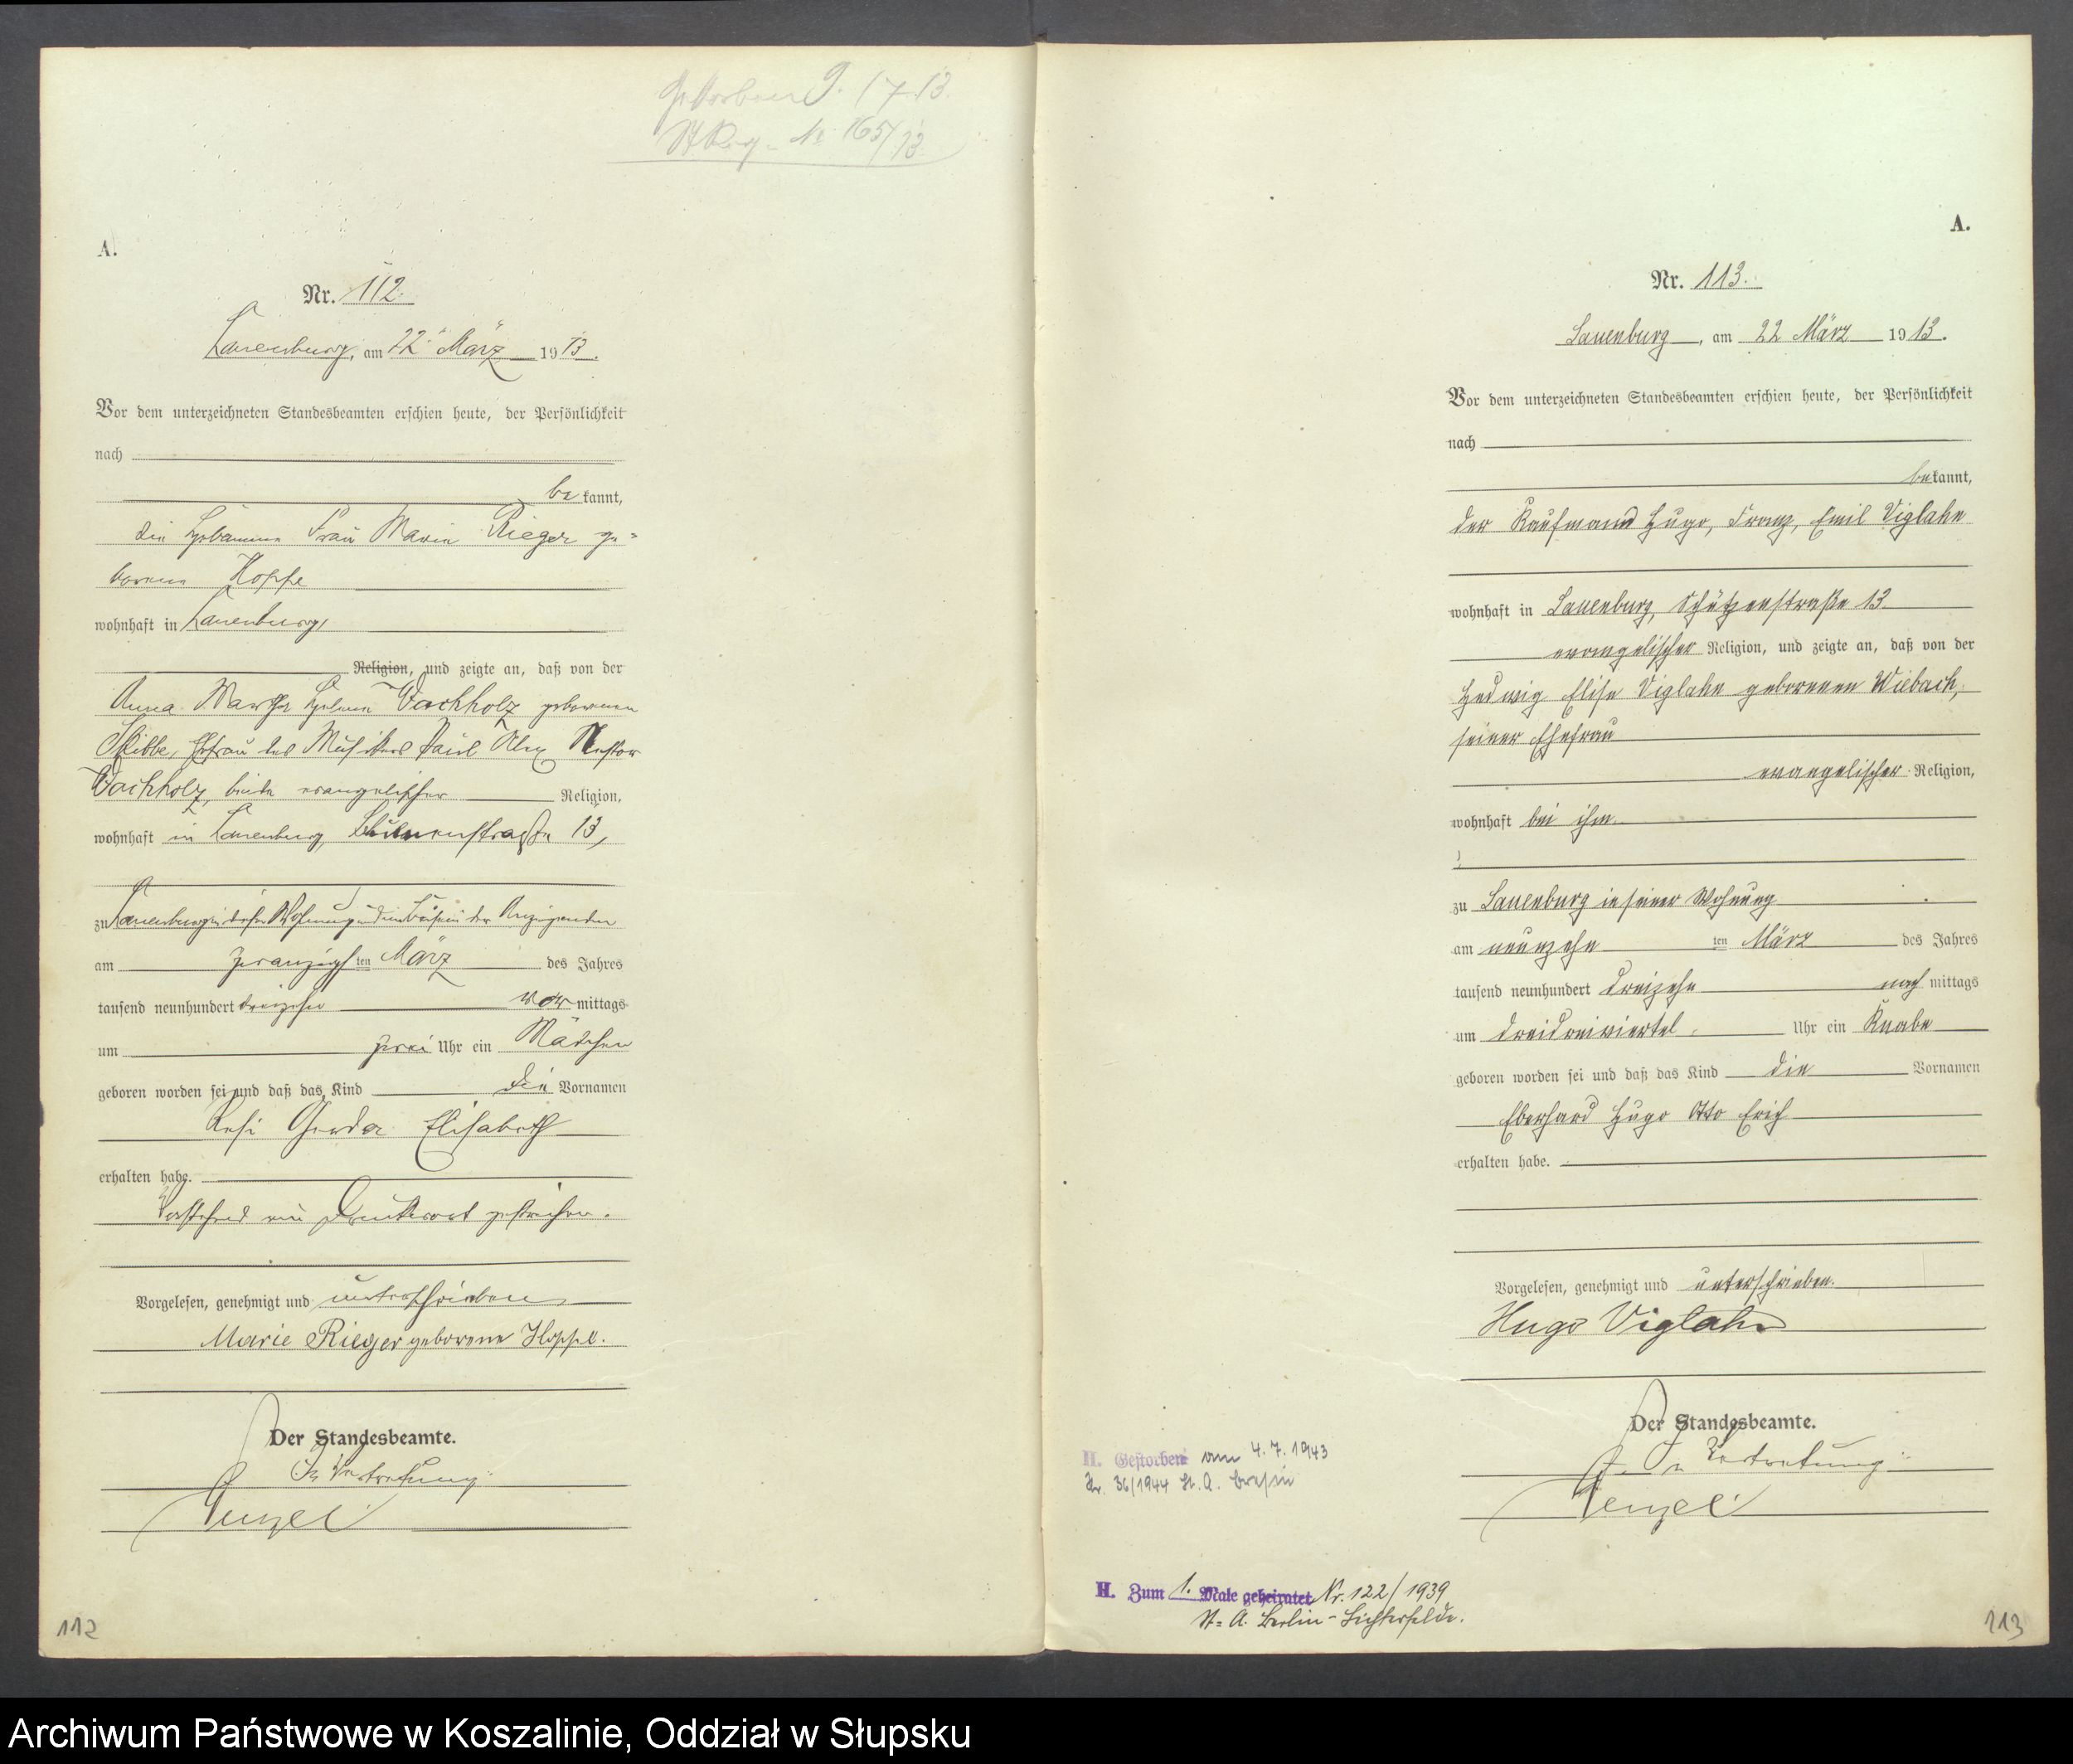 Gestorben 9. 17 13.
St. Reg. No 165/13.
A.
Nr. 112.
Lauenburg, am 22 März 1913.
Vor dem unterzeichneten Standesbeamten erschien heute, der Persönlichkeit
nach
bekannt,
die Hebamme Frau Marie Rieger ge=
borene Hoppe
wohnhaft in Lauenburg,
Religion, und zeigte an, daß von der
Anna Martha Helene Vachholz geborenen
Skibbe, Ehefrau des Musikers Paul Alex Nestor
Vachholz, beide evangelischer Religion,
wohnhaft in Lauenburg, Blumenstraße 13,
zu Lauenburg in dieser Wohnung und im Beisein der Anzeigenden
am zwanzigsten März des Jahres
tausend neunhundert dreizehn vormittags
um zwei Uhr ein Mädchen
geboren worden sei und daß das Kind die Vornamen
Resi Gerda Elisabeth
erhalten habe.
Vorstehend ein Druckwort gestrichen.
Vorgelesen, genehmigt und unterschrieben
Marie Rieger geborene Hoppe.
Der Standesbeamte.
In Vertretung:
112
A.
Nr. 113.
Lauenburg, am 22 März 1913.
Vor dem unterzeichneten Standesbeamten erschien heute, der Persönlichkeit
nach
bekannt,
der Kaufmann Hugo, Franz, Emil Viglahn
wohnhaft in Lauenburg, Schützenstraße 13
evangelischer Religion, und zeigte an, daß von der
Hedwig Elise Viglahn geborenen Wiebach,
seiner Ehefrau
evangelischer Religion,
wohnhaft bei ihm
zu Lauenburg in seiner Wohnung
am neunzehnten März des Jahres
tausend neunhundert dreizehn nachmittags
um dreidreiviertel Uhr ein Knabe
geboren worden sei und daß das Kind die Vornamen
Eberhard Hugo Otto Erich
erhalten habe.
Vorgelesen, genehmigt und unterschrieben.
Hugo Viglahn
Der Standesbeamte.
In Vertretung:
H. Gestorben am 4.7.1943
Nr. 36/1944 St. A.
H. Zum 1. Male geheiratet Nr. 122/1939
St. A. Berlin-Lichterfelde.
113
Archiwum Państwowe w Koszalinie, Oddział w Słupsku